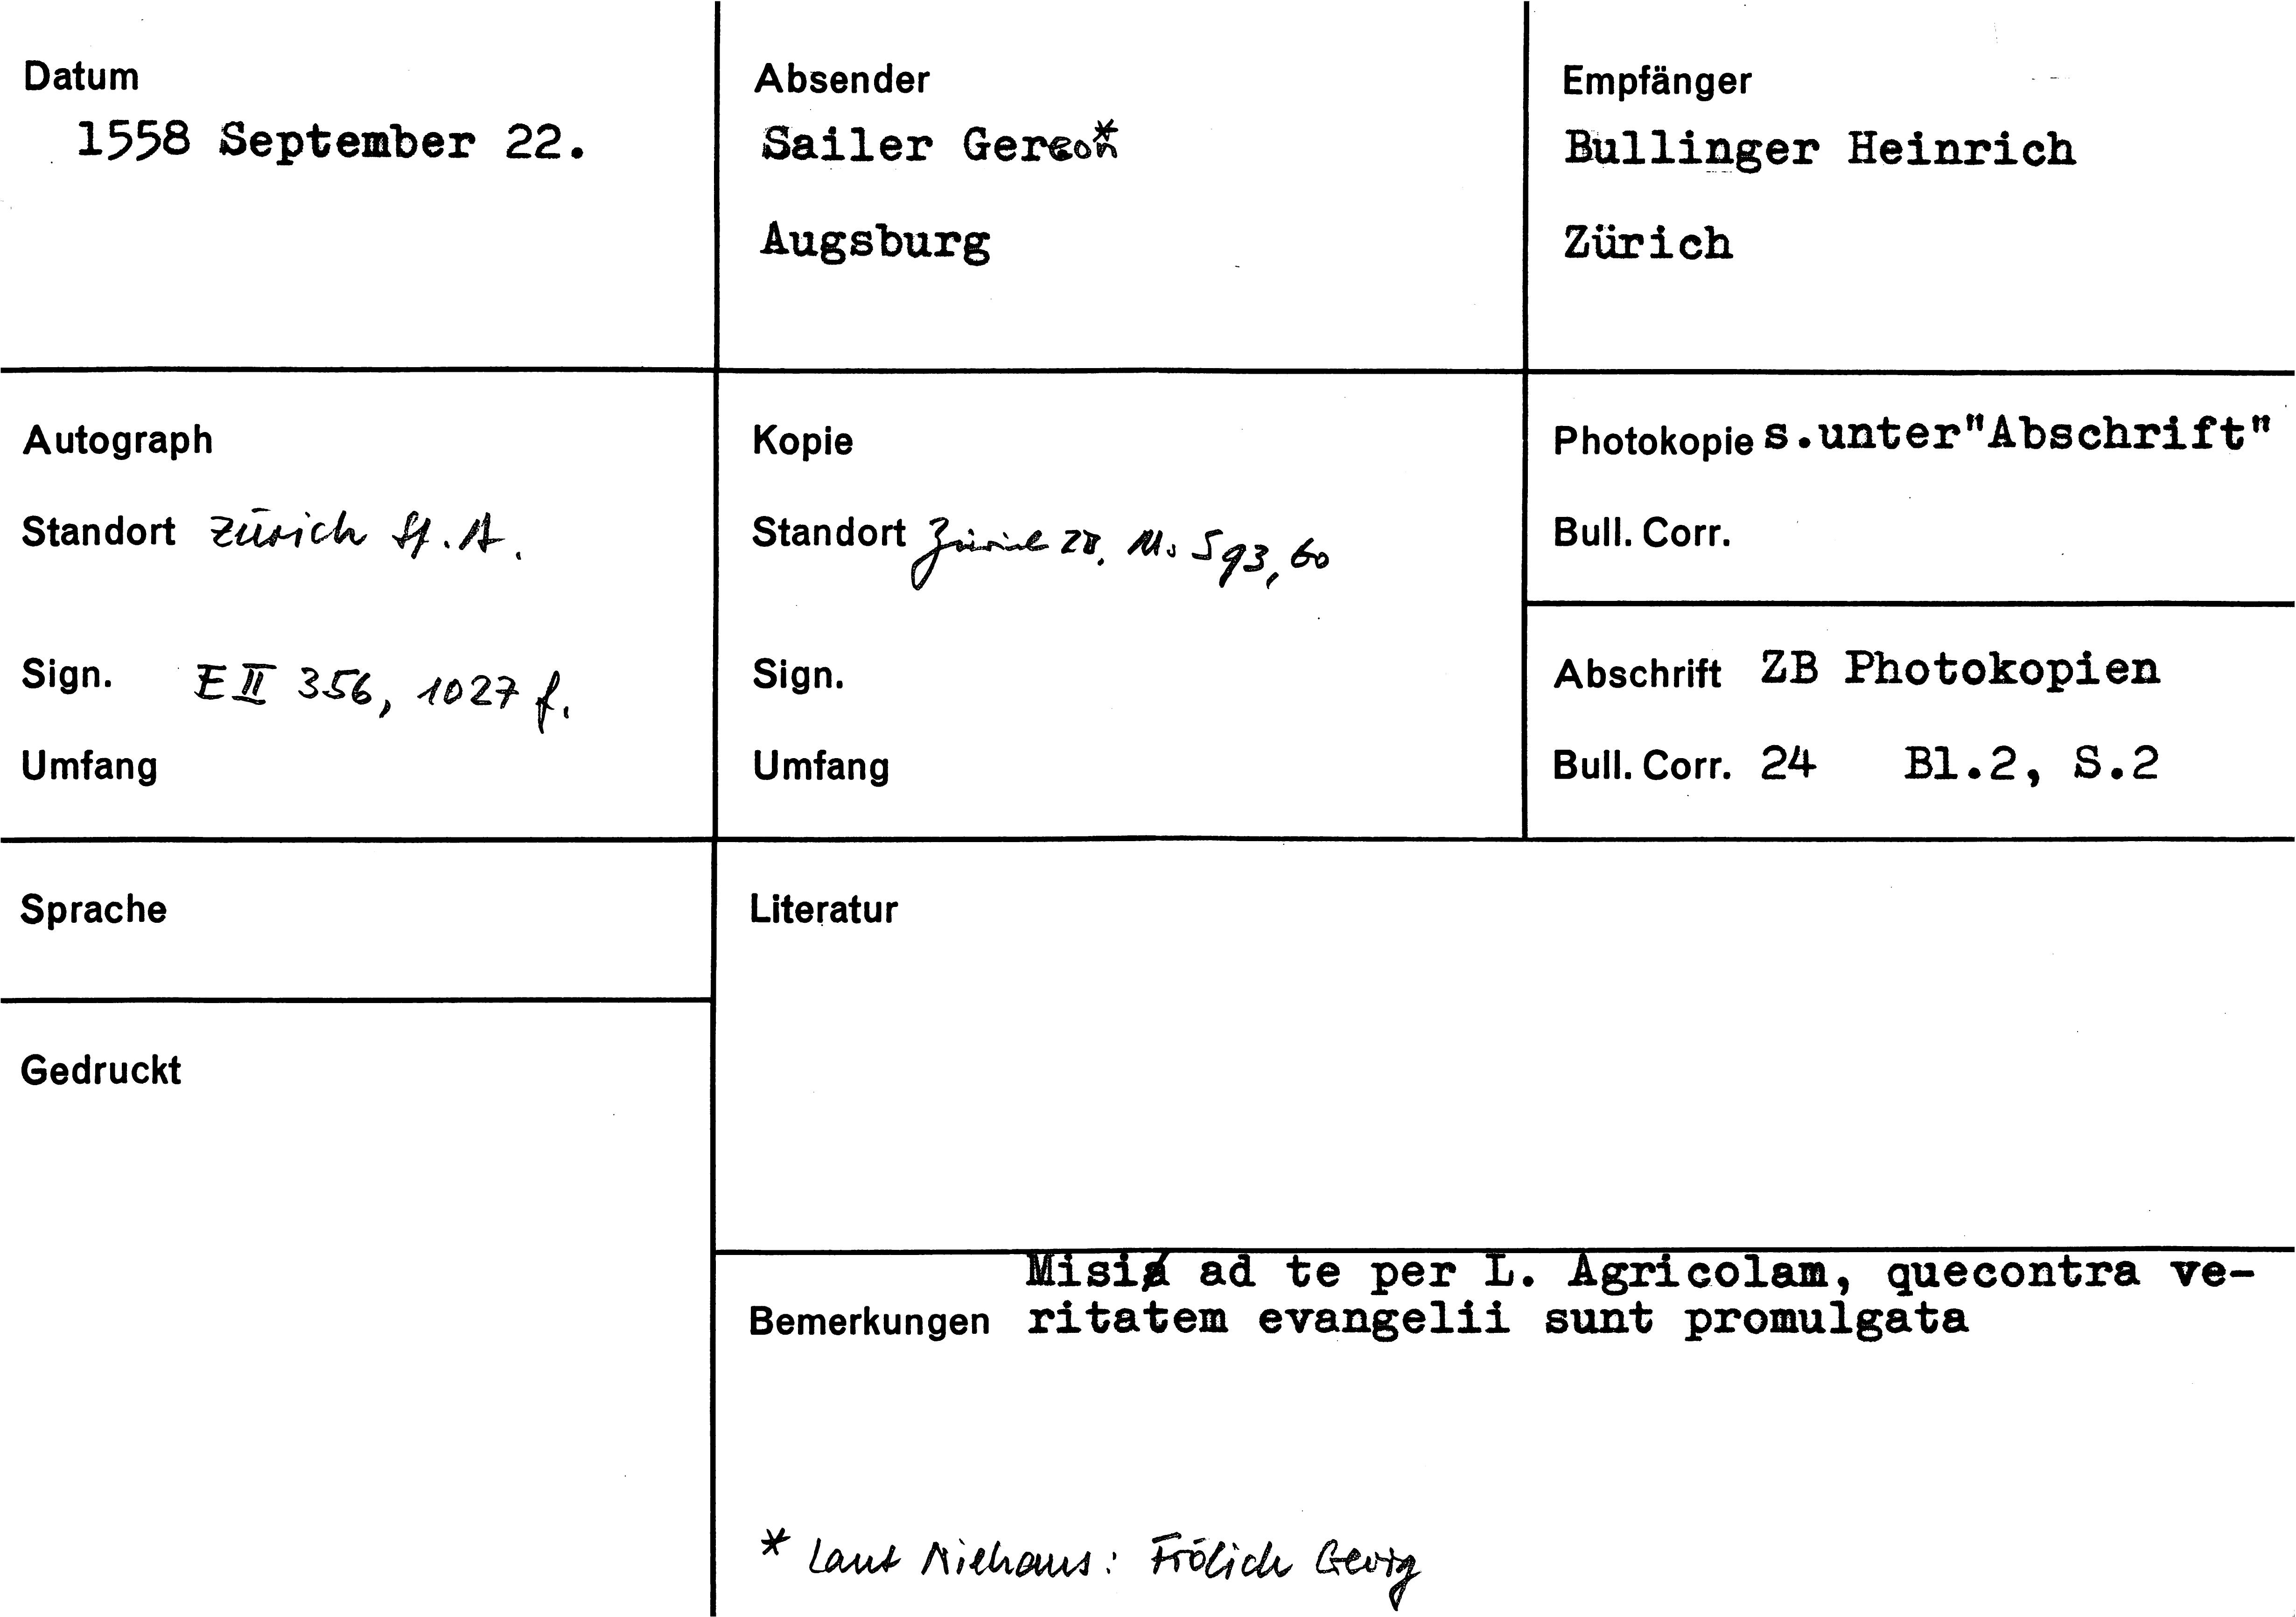 Datum
1558 September 22.
Absender
Sailer Gereon*
Augsburg
Empfänger
Bullinger Heinrich
Zürich
Autograph
Standort Zürich St. A.
Sign. E II 356, 1027 f.
Umfang
Kopie
Standort Zürich ZB. Ms S 93, 60
Sign.
Umfang
Photokopie s.unter"Abschrift"
Bull. Corr.
Abschrift ZB Photokopien
Bull. Corr. 24 Bl.2, S.2
Sprache
Gedruckt
Literatur
Misi ad te per L. Agricolam, quecontra ve-
Bemerkungen ritatem evangelii sunt promulgata
* Laut Niehaus: Frölich Georg